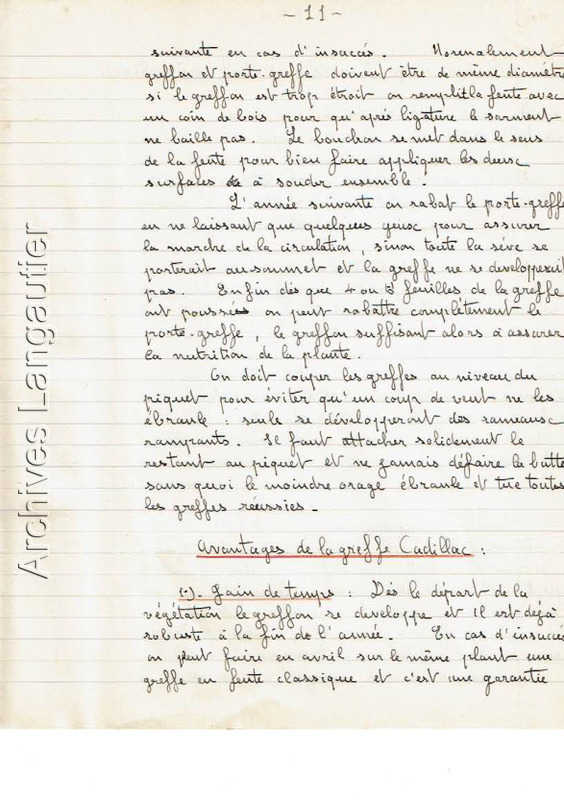 - 11 -
suivante en cas d'insuccès. Normalement
greffon et porte-greffe doivent être de même diamètre
si le greffon est trop étroit on remplit la fente avec
un coin de bois pour qu'après ligature le sarment
ne baille pas. Le bouchon se met dans le sens
de la fente pour bien faire appliquer les deux
surfaces à souder ensemble.
L'année suivante on rabat le porte-greffe
en ne laissant que quelques yeux pour assurer
la marche de la circulation, sinon toute la sève se
porterait au sommet et la greffe ne se developperait
pas. Enfin dès que 4 ou 5 feuilles de la greffe
ont poussées on peut rabattre complètement le
porte-greffe, le greffon suffisant alors à assurer
la nutrition de la plante.
On doit couper les greffes au niveau du
piquet pour éviter qu'un coup de vent ne les
ébranle : seuls se développeront des rameaux
rampants. Il faut attacher solidement le
restant au piquet et ne jamais défaire la butte
sans quoi le moindre orage ébranle et tue toutes
les greffes réussies.
Avantages de la greffe Cadillac :
1°). Gain de temps : Dès le départ de la
végétation le greffon se developpe et il est déjà
robuste à la fin de l'année. En cas d'insuccès
on peut faire en avril sur le même plant une
greffe en fente classique et c'est une garantie
Archives Langautier